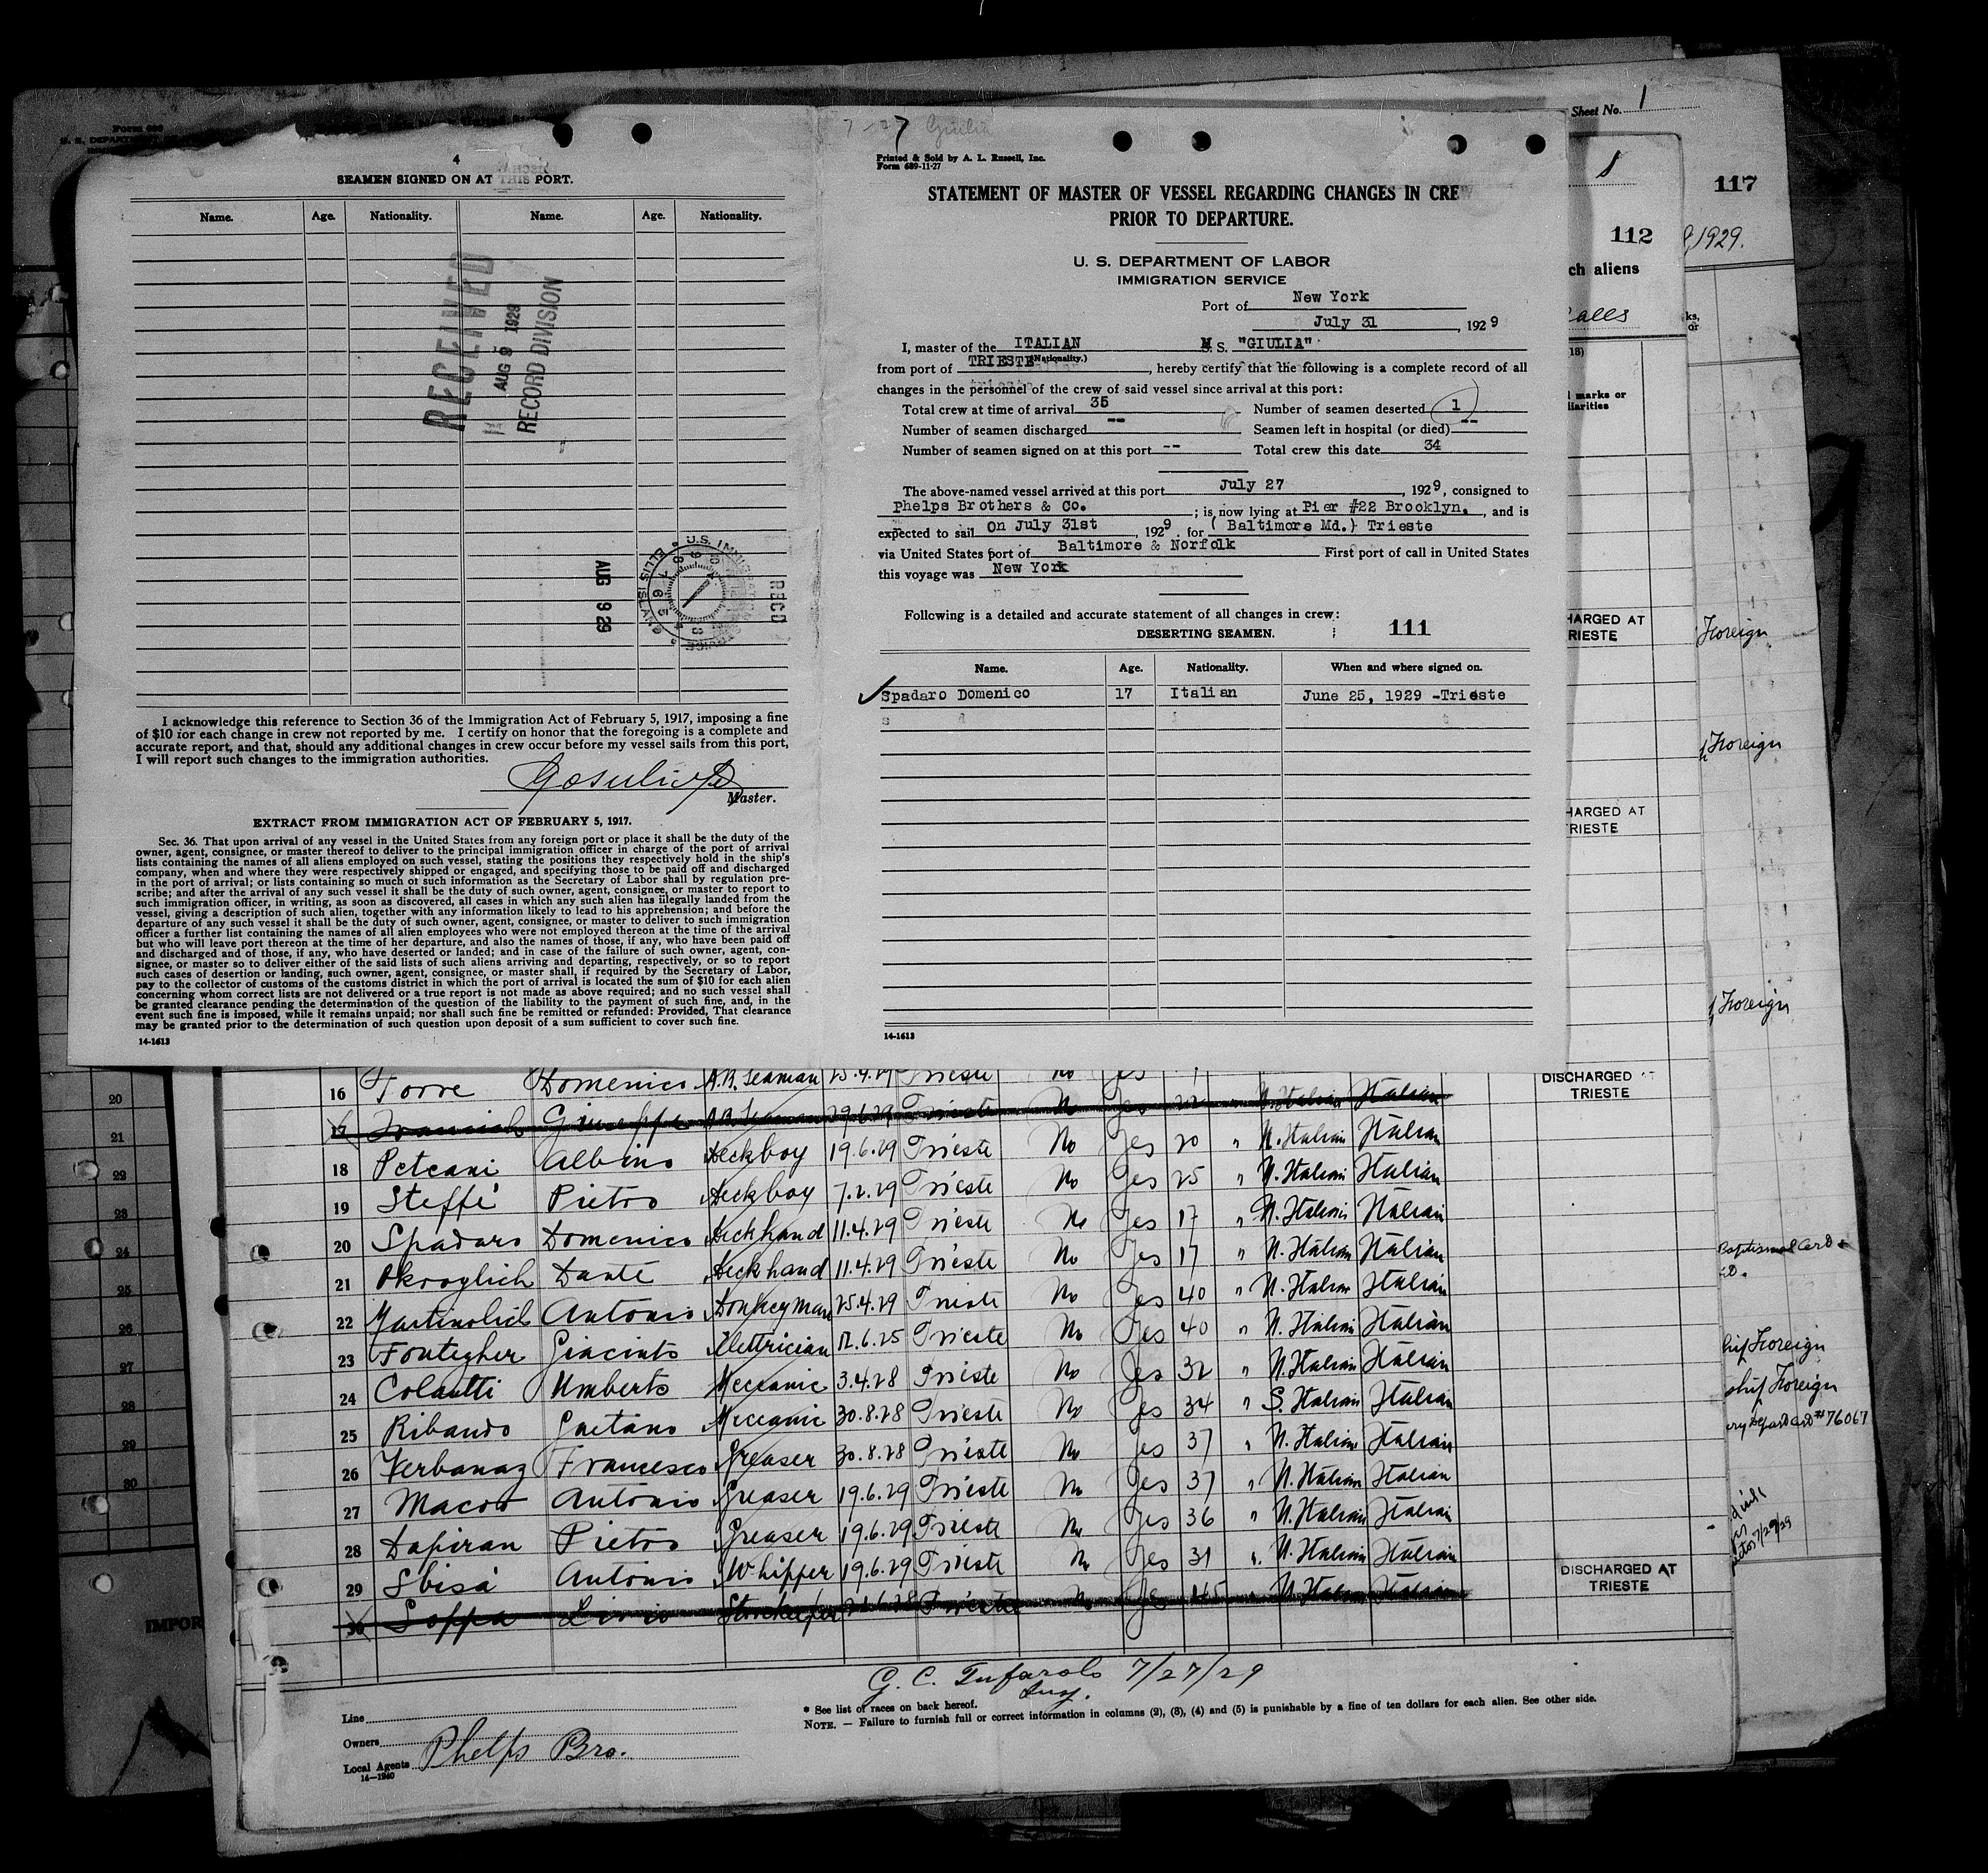 4
SEAMEN SIGNED ON AT THIS PORT.
Name. Age. Nationality. Name. Age. Nationality.
RECEIVED
AUG 9 1929
RECORD DIVISION
RECD
AUG 9 29
U.S. IMMIGRATION SERVICE ELLIS ISLAND
I acknowledge this reference to Section 36 of the Immigration Act of February 5, 1917, imposing a fine
of $10 for each change in crew not reported by me. I certify on honor that the foregoing is a complete and
accurate report, and that, should any additional changes in crew occur before my vessel sails from this port,
I will report such changes to the immigration authorities.
Master.
EXTRACT FROM IMMIGRATION ACT OF FEBRUARY 5, 1917.
Sec. 36. That upon arrival of any vessel in the United States from any foreign port or place it shall be the duty of the
owner, agent, consignee, or master thereof to deliver to the principal immigration officer in charge of the port of arrival
lists containing the names of all aliens employed on such vessel, stating the positions they respectively hold in the ship's
company, when and where they were respectively shipped or engaged, and specifying those to be paid off and discharged
in the port of arrival; or lists containing so much of such information as the Secretary of Labor shall by regulation pre-
scribe; and after the arrival of any such vessel it shall be the duty of such owner, agent, consignee, or master to report to
such immigration officer, in writing, as soon as discovered, all cases in which any such alien has illegally landed from the
vessel, giving a description of such alien, together with any information likely to lead to his apprehension; and before the
departure of any such vessel it shall be the duty of such owner, agent, consignee, or master to deliver to such immigration
officer a further list containing the names of all alien employees who were not employed thereon at the time of the arrival
but who will leave port thereon at the time of her departure, and also the names of those, if any, who have been paid off
and discharged and of those, if any, who have deserted or landed; and in case of the failure of such owner, agent, con-
signee, or master so to deliver either of the said lists of such aliens arriving and departing, respectively, or so to report
such cases of desertion or landing, such owner, agent, consignee, or master shall, if required by the Secretary of Labor,
pay to the collector of customs of the customs district in which the port of arrival is located the sum of $10 for each alien
concerning whom correct lists are not delivered or a true report is not made as above required; and no such vessel shall
be granted clearance pending the determination of the question of the liability to the payment of such fine, and, in the
event such fine is imposed, while it remains unpaid; nor shall such fine be remitted or refunded: Provided, That clearance
may be granted prior to the determination of such question upon deposit of a sum sufficient to cover such fine.
14-1613
7-27 Giulia
Printed & Sold by A. L. Russell, Inc.
Form 689-11-27
STATEMENT OF MASTER OF VESSEL REGARDING CHANGES IN CREW
PRIOR TO DEPARTURE.
U. S. DEPARTMENT OF LABOR
IMMIGRATION SERVICE
Port of New York
July 31, 1929
I, master of the ITALIAN M.S. "GIULIA"
(Nationality.)
from port of TRIESTE, hereby certify that the following is a complete record of all
changes in the personnel of the crew of said vessel since arrival at this port:
Total crew at time of arrival 35 Number of seamen deserted 1
Number of seamen discharged -- Seamen left in hospital (or died) --
Number of seamen signed on at this port -- Total crew this date 34
The above-named vessel arrived at this port July 27, 1929, consigned to
Phelps Brothers & Co.; is now lying at Pier #22 Brooklyn., and is
expected to sail On July 31st, 1929 for ( Baltimore Md.) Trieste
via United States port of Baltimore & Norfolk First port of call in United States
this voyage was New York
Following is a detailed and accurate statement of all changes in crew:
DESERTING SEAMEN. 111
Name. Age. Nationality. When and where signed on.
Spadaro Domenico 17 Italian June 25, 1929 -Trieste
14-1613
Sheet No. 1
117
1929.
112
ch aliens
ks,
or
(18)
l marks or
liarities
HARGED AT
RIESTE
Foreign
Foreign
HARGED AT
RIESTE
Foreign
DISCHARGED
TRIESTE
16 Torre Domenico A.B. Seaman 25.4.29 Trieste No Yes
17 Giuseppe A.B. Seaman 29.6.29 Trieste No Yes 22 " N. Italian Italian
18 Peteani Albino Deckboy 19.6.29 Trieste No Yes 20 " N. Italian Italian
19 Steffè Pietro Deckboy 7.2.29 Trieste No Yes 25 " N. Italian Italian
20 Spadaro Domenico Deckhand 11.4.29 Trieste No Yes 17 " N. Italian Italian
21 Okroglich Dante Deckhand 11.4.29 Trieste No Yes 17 " N. Italian Italian
22 Martinolich Antonio Donkeyman 25.4.29 Trieste No Yes 40 " N. Italian Italian
23 Fontegher Giacinto Elettrician 12.6.25 Trieste No Yes 40 " N. Italian Italian
24 Colautti Umberto Meccanic 3.4.28 Trieste No Yes 32 " N. Italian Italian
25 Ribaudo Gaetano Meccanic 30.8.28 Trieste No Yes 34 " S. Italian Italian
26 Verbanaz Francesco Greaser 30.8.28 Trieste No Yes 37 " N. Italian Italian
27 Macor Antonio Greaser 19.6.29 Trieste No Yes 37 " N. Italian Italian
28 Dapiran Pietro Greaser 19.6.29 Trieste No Yes 36 " N. Italian Italian
29 Sbisà Antonio Whipper 19.6.29 Trieste No Yes 31 " N. Italian Italian
30 Soppa Livio Storekeeper Trieste No Yes 45 " N. Italian Italian
DISCHARGED AT
TRIESTE
Baptismal Card
Foreign
ship Foreign
#76067
7/29/29
20
21
22
23
24
25
26
27
28
29
30
IMPOR
G. C. Tufarolo 7/27/29
Insp.
* See list of races on back hereof.
NOTE. — Failure to furnish full or correct information in columns (2), (3), (4) and (5) is punishable by a fine of ten dollars for each alien. See other side.
Line
Owners
Local Agents Phelps Bro.
14—1240